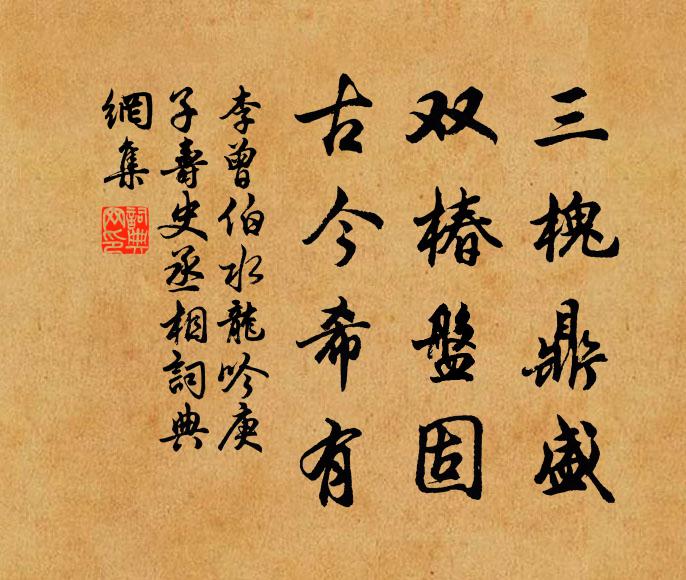 三槐鼎盛
双椿盤固
古今希有
李曾伯水龍吟庚
子壽史丞相詞典
網集
詞典网印